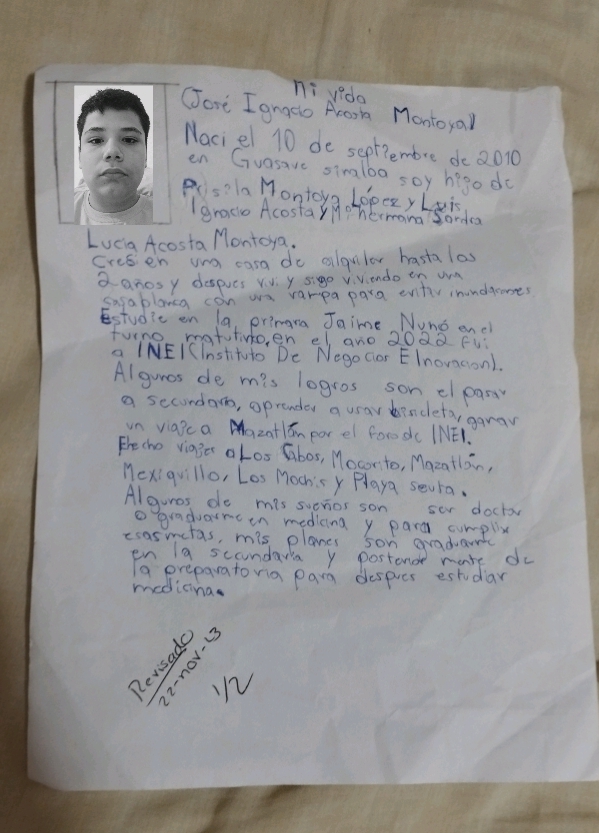 mi vida
(José Ignacio Acosta Montoya)
Naci el 10 de septiembre de 2010
en Guasave sinaloa soy hijo de
Prisila Montoya López y Luis
Ignacio Acosta y Mi hermana Sandra
Lucia Acosta Montoya.
Creci en una casa de alquiler hasta los
2 años y despues vivi y sigo viviendo en una
casa blanca con una rampa para evitar inundaciones.
Estudie en la primaria Jaime Nunó en el
turno matutino, en el año 2022 Fui
a INEI (Instituto De Negocios E Inovacion).
Algunos de mis logros son el pasar
a secundaria, aprender a usar bicicleta, ganar
un viaje a Mazatlán por el foro de INEI.
He hecho viajes a Los Cabos, Mocorito, Mazatlán,
Mexiquillo, Los Mochis y Playa ceuta.
Algunos de mis sueños son ser doctor
o graduarme en medicina y para cumplir
esas metas, mis planes son graduarme
en la secundaria y posterior mente de
la preparatoria para despues estudiar
medicina.
Revisado
22-nov-23
1/2